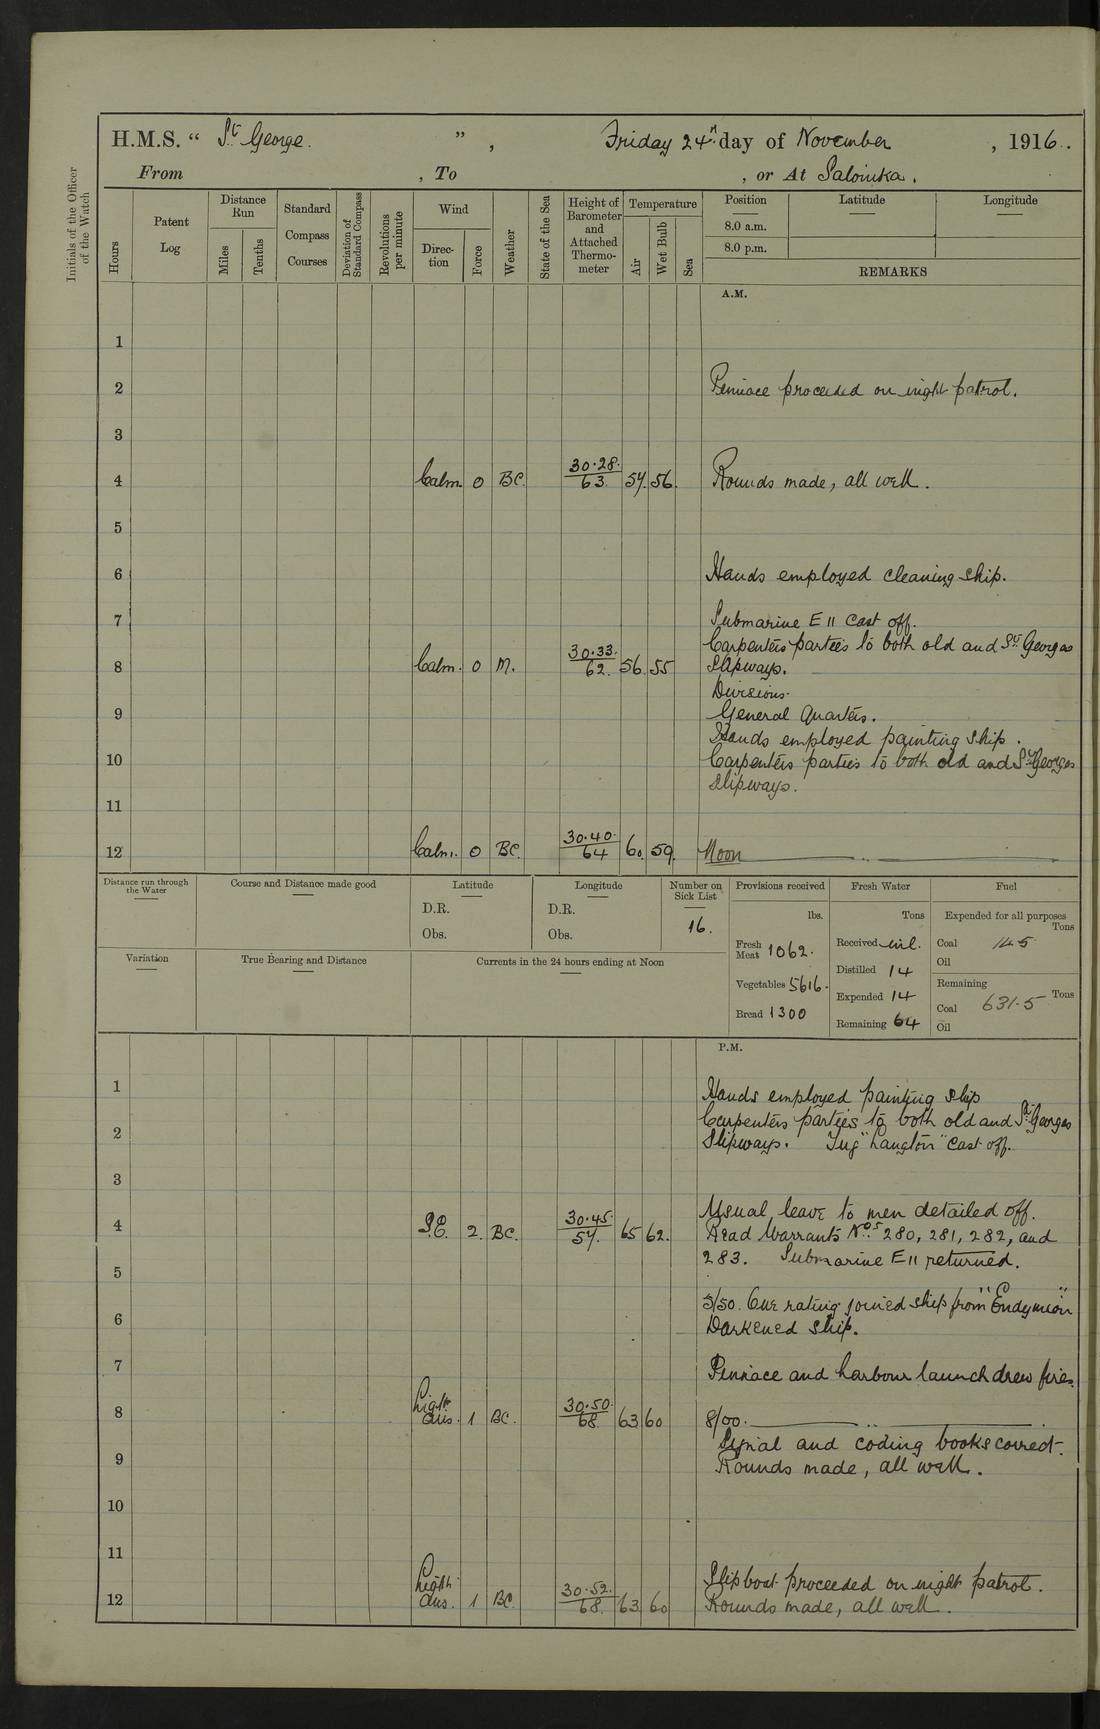 H.M.S. “ St George. ”, Friday 24th day of November, 1916.
From , To , or At Salonika.
Initials of the Officer of the Watch
Hours
Patent Log
Distance Run
Miles
Tenths
Standard Compass Courses
Deviation of Standard Compass
Revolutions per minute
Wind
Direction
Force
Weather
State of the Sea
Height of Barometer and Attached Thermometer
Temperature
Air
Wet Bulb
Sea
Position
8.0 a.m.
8.0 p.m.
Latitude
Longitude
REMARKS
A.M.
1
2 Pinnace proceeded on night patrol.
3
4 Calm. 0 BC. 30.28. 63. 57. 56. Rounds made, all well.
5
6 Hands employed cleaning ship.
7 Submarine E 11 cast off.
Carpenters parties to both old and St Georges
8 Calm. 0 M. 30.33. 62. 56. 55 Slipways.
Divisions.
9 General Quarters.
Hands employed painting ship.
10 Carpenters parties to both old and St Georges
Slipways.
11
12 Calm. 0 BC. 30.40. 64 60. 59. Noon
Distance run through the Water
Course and Distance made good
Latitude
D.R.
Obs.
Longitude
D.R.
Obs.
Number on Sick List
16.
Provisions received
lbs.
Fresh Meat 1062.
Vegetables 5616.
Bread 1300
Fresh Water
Tons
Received nil.
Distilled 14
Expended 14
Remaining 64
Fuel
Expended for all purposes
Tons
Coal 14.5
Oil
Remaining
Tons
Coal 631.5
Oil
Variation
True Bearing and Distance
Currents in the 24 hours ending at Noon
P.M.
1 Hands employed painting ship
Carpenters parties to both old and St Georges
2 Slipways. Tug "Langton" cast off.
3
Usual leave to men detailed off.
4 S.E. 2. BC. 30.45. 57. 65 62. Read Warrants Nos 280, 281, 282, and
283. Submarine E 11 returned.
5
5/50. One rating joined ship from "Endymion"
6 Darkened ship.
7 Pinnace and harbour launch drew fires.
8 Light airs. 1 BC. 30.50. 68. 63 60 8/00.
Signal and coding books correct.
9 Rounds made, all well.
10
11
Slipboat proceeded on night patrol.
12 Light airs. 1 BC. 30.52. 68. 63 60 Rounds made, all well.